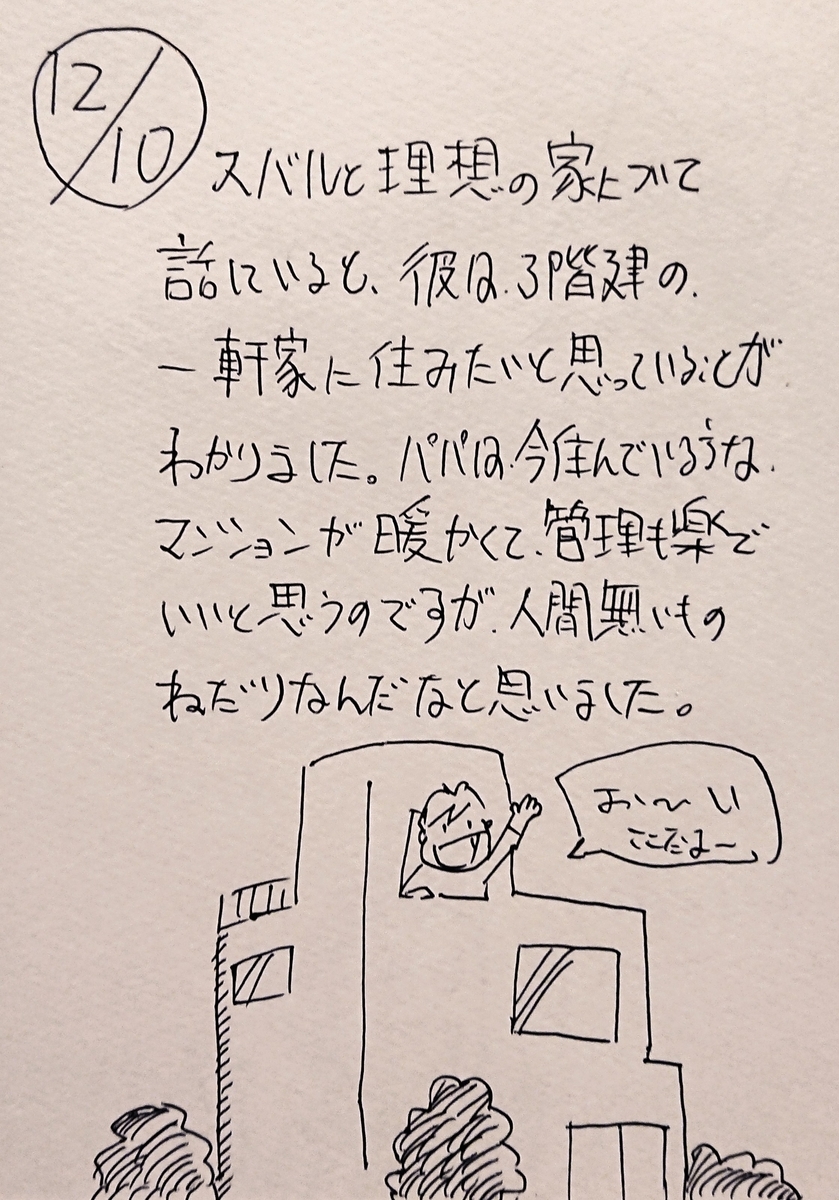 12/10
スバルと理想の家について
話していると、彼は、3階建の、
一軒家に住みたいと思っていることが
わかりました。パパは、今住んでいるような、
マンションが暖かくて、管理も楽で
いいと思うのですが、人間無いもの
ねだりなんだなと思いました。
お〜い
ここだよー